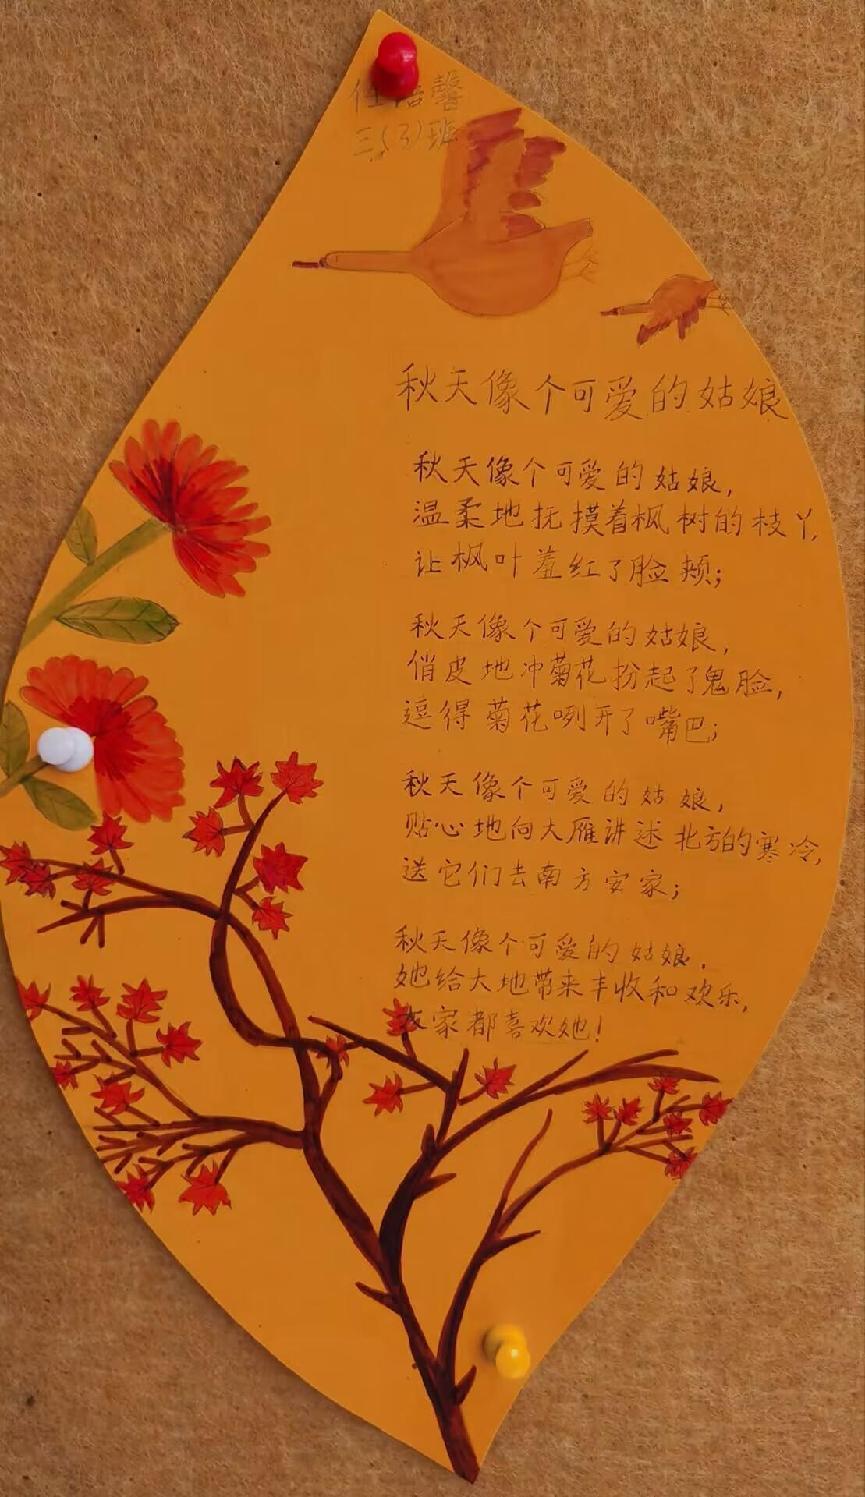 任语馨
三(3)班
秋天像个可爱的姑娘
秋天像个可爱的姑娘，
温柔地抚摸着枫树的枝丫，
让枫叶羞红了脸颊；
秋天像个可爱的姑娘，
俏皮地冲菊花扮起了鬼脸，
逗得菊花咧开了嘴巴；
秋天像个可爱的姑娘，
贴心地向大雁讲述北方的寒冷，
送它们去南方安家；
秋天像个可爱的姑娘，
她给大地带来丰收和欢乐，
大家都喜欢她！